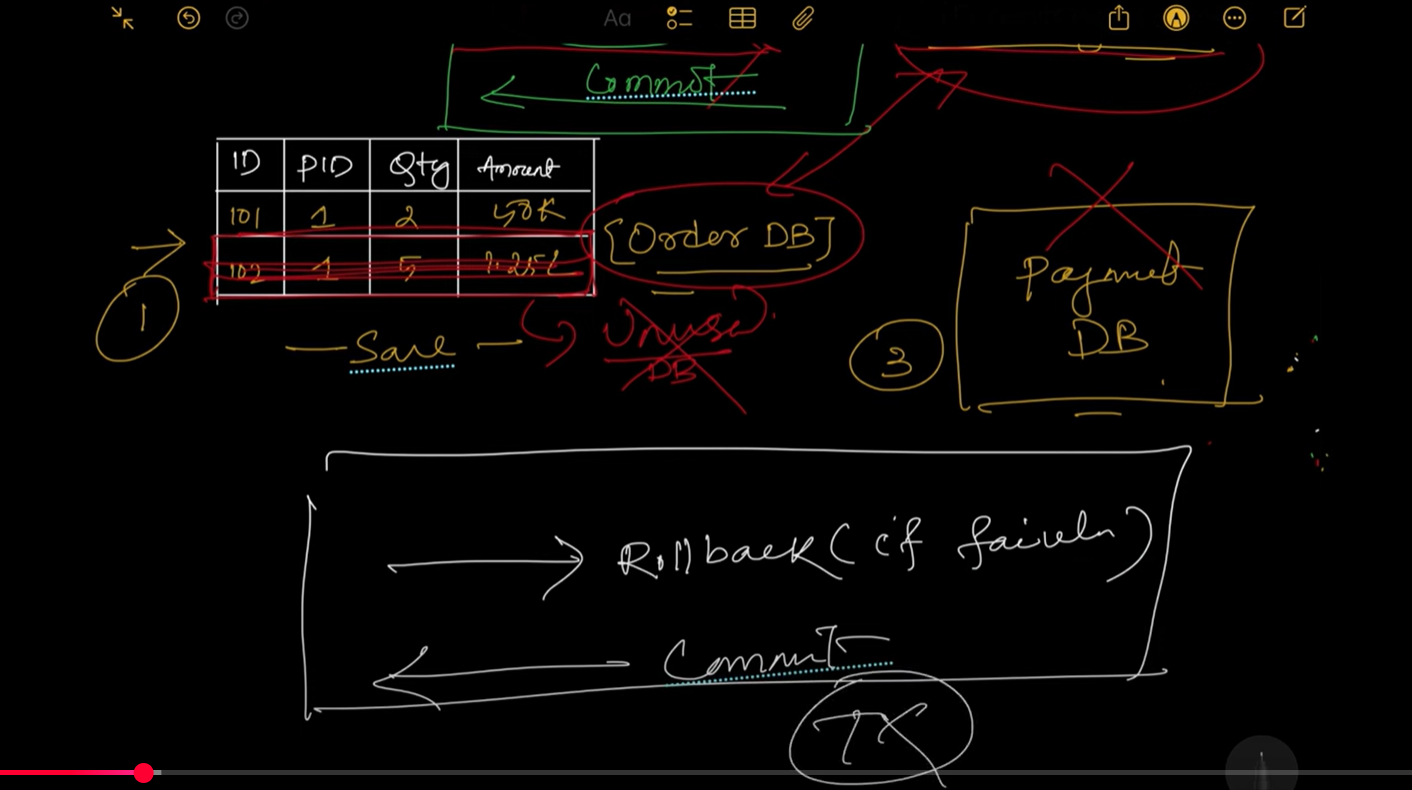 Aa
Commit
ID PID Qty Amount
101 1 2 50K
102 1 5 1.25L
[Order DB]
1
Save
Unused
DB
3
Payment
DB
Rollback (if failure)
Commit
TX